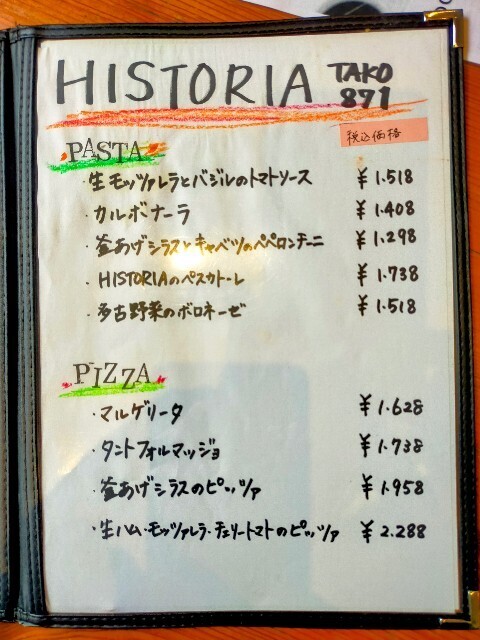 HISTORIA TAKO 871
税込価格
PASTA
・生モッツァレラとバジルのトマトソース ¥1.518
・カルボナーラ ¥1.408
・釜あげシラスとキャベツのペペロンチーニ ¥1.298
・HISTORIAのペスカトーレ ¥1.738
・多古野菜のボロネーゼ ¥1.518
PIZZA
・マルゲリータ ¥1.628
・タントフォルマッジョ ¥1.738
・釜あげシラスのピッツァ ¥1.958
・生ハム・モッツァレラ・チェリートマトのピッツァ ¥2.288